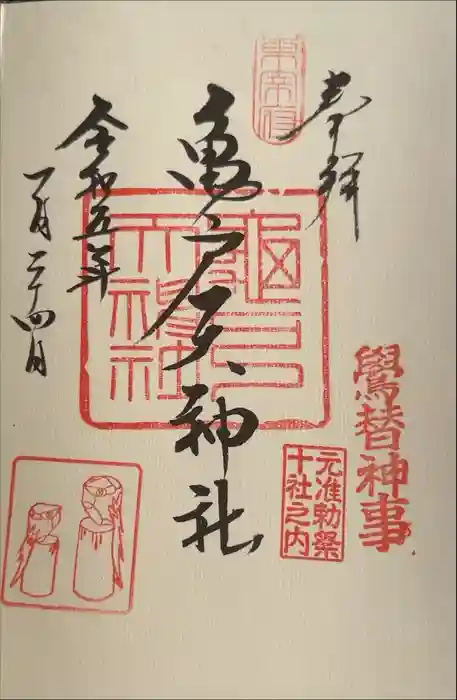 奉拝
東宰府
鷽替神事
元准勅祭
十社之内
亀戸天神社
龜戸
天神社
令和五年
一月二十四日